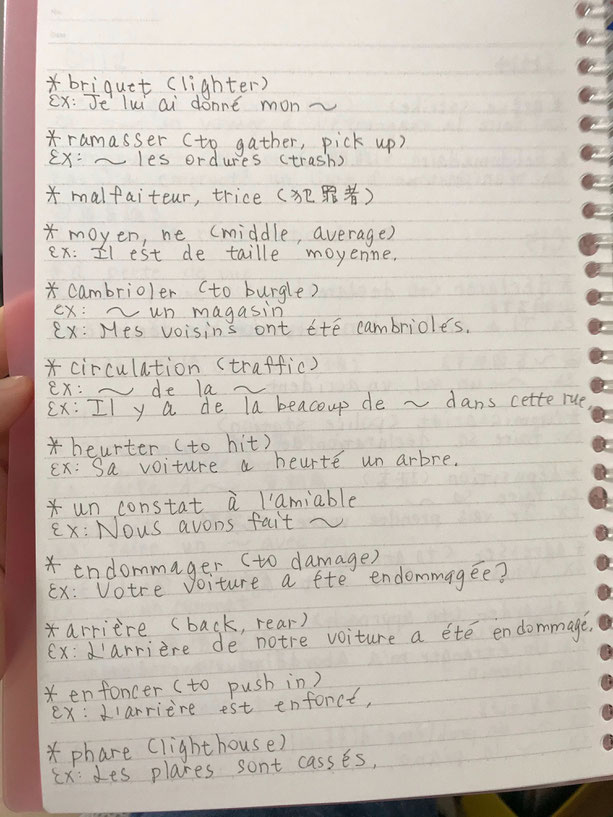 * briquet (lighter)
Ex: Je lui ai donné mon ~
* ramasser (to gather, pick up)
Ex: ~ les ordures (trash)
* malfaiteur, trice (犯罪者)
* moyen, ne (middle, average)
Ex: Il est de taille moyenne.
* cambrioler (to burgle)
Ex: ~ un magasin
Ex: Mes voisins ont été cambriolés.
* circulation (traffic)
Ex: ~ de la ~
Ex: Il y a de la beacoup de ~ dans cette rue.
* heurter (to hit)
Ex: Sa voiture a heurté un arbre.
* un constat à l'amiable
Ex: Nous avons fait ~
* endommager (to damage)
Ex: Votre voiture a éte endommagée?
* arrière (back, rear)
Ex: L'arrière de notre voiture a été endommagé.
* enfoncer (to push in)
Ex: L'arrière est enfoncé.
* phare (lighthouse)
Ex: Les plares sont cassés.